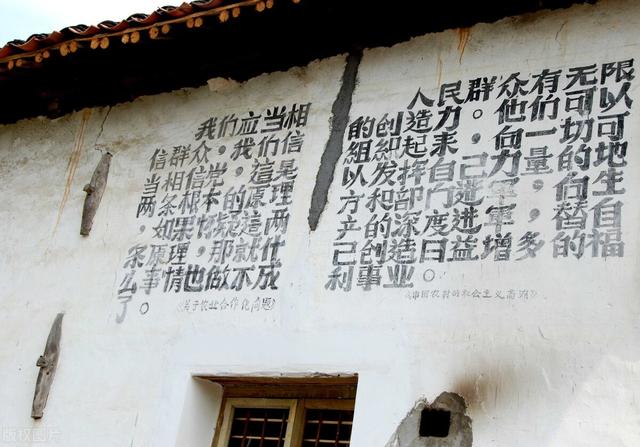 我们应当相
信群众，我们应
当相信党。這是
两条根本的原理
。如果怀疑這两
条原理，那就什
么事情也做不成
了。
《关于农业合作化问题》
人民群众有无限
的创造力。他们可以
組織起来，向一切可
以发挥自己力量的地
方和部门進軍，向生
产的深度進軍，替自
己创造日益增多的福
利事业。
《中国农村的社会主义高潮》
版权图片